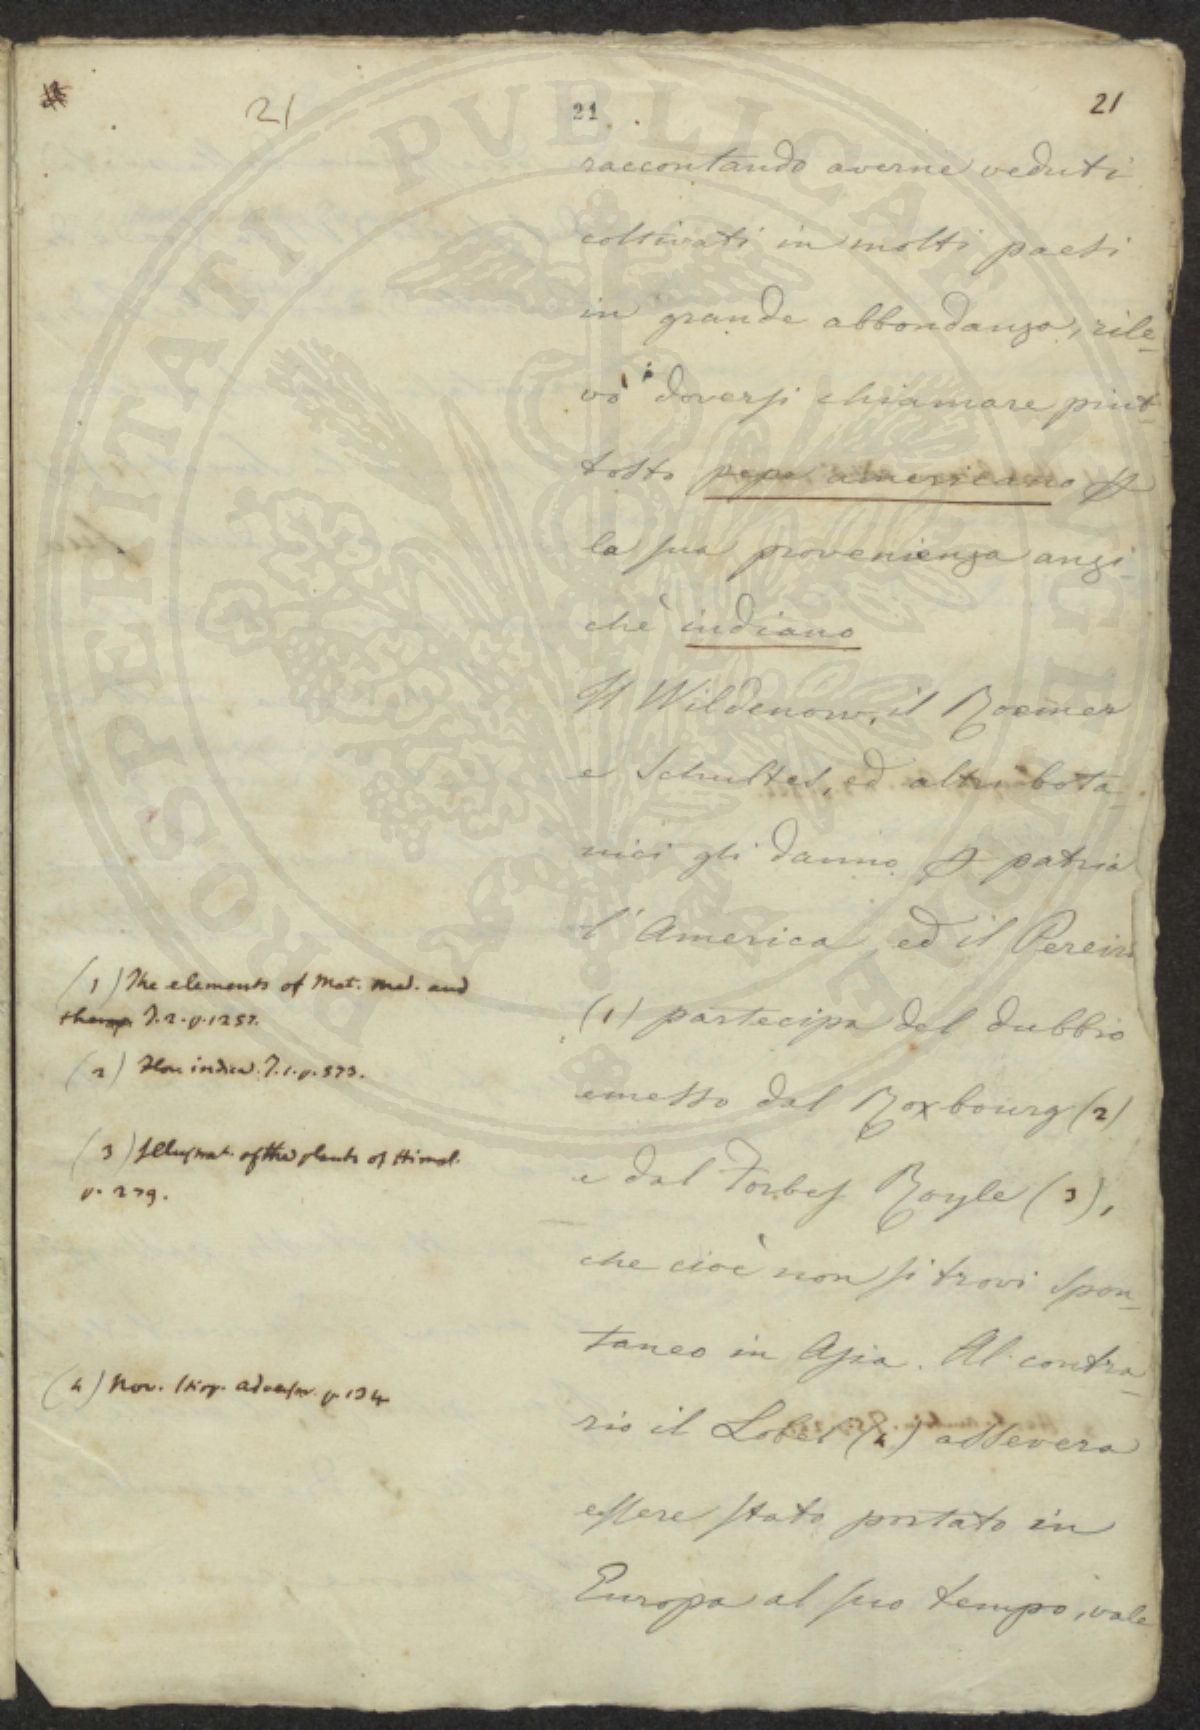 21
21
21
raccontando averne veduti
coltivati in molti paesi
in grande abbondanza, rile-
vò doversi chiamare piut-
tosto pepe americano
la sua provenienza anzi-
chè indiano
Il Wildenow, il Roemer
e Schultes, ed altri bota-
nici gli danno patria
l'America, ed il Pereira
(1) partecipa del dubbio
emesso dal Roxbourg (2)
e dal Forbes Royle (3),
che cioè non si trovi spon-
taneo in Asia. Al contra-
rio il Lobel (4) assevera
essere stato portato in
Europa al suo tempo, vale
(1) The elements of Mat. Med. and
therap. T. 2. p. 1257.
(2) Flor. indica. T. 1. p. 573.
(3) Illustrat. of the plants of Himal.
p. 279.
(4) Nov. stirp. adversar. p. 134
PUBLICAE
PROSPERITATI